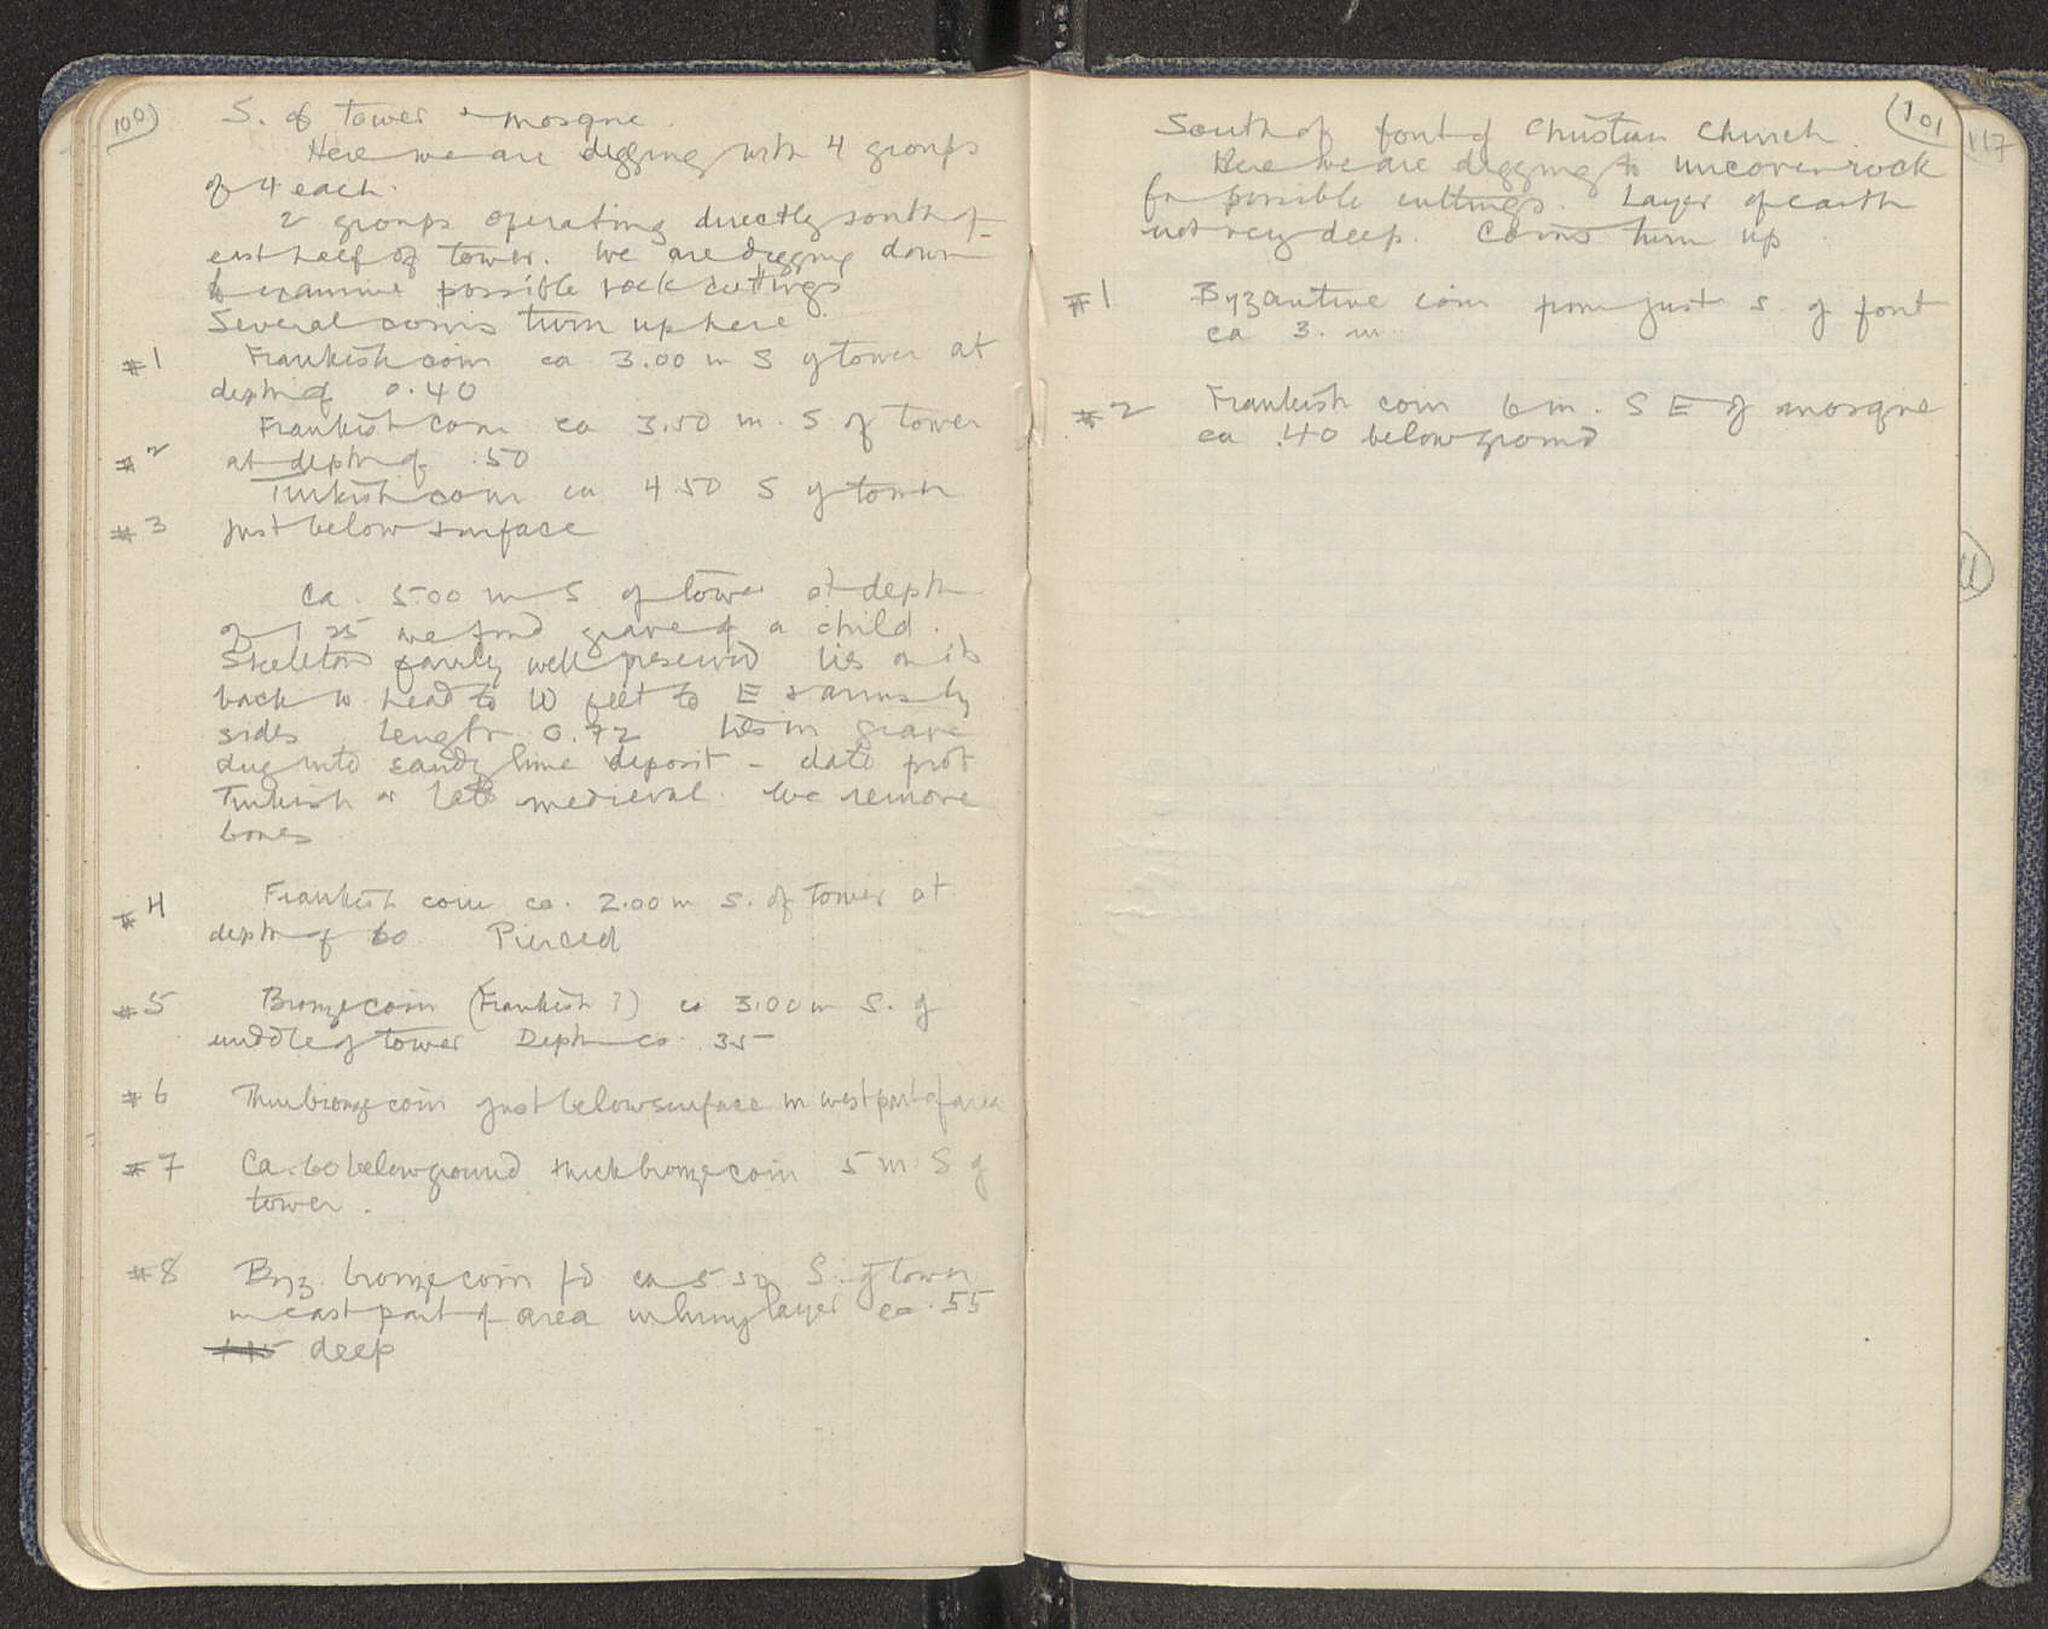 100
S. of tower & mosque.
Here we are digging with 4 groups
of 4 each.
2 groups operating directly south of
east half of tower. We are digging down
to examine possible rock cuttings
Several coins turn up here.
#1 Frankish coin ca 3.00 m S of tower at
depth of 0.40
Frankish coin ca 3.50 m. S of tower
#2 at depth of .50
Turkish coin ca 4.50 S of tower
#3 just below surface
Ca. 5.00 m S of tower at depth
of 1.25 we find grave of a child.
Skeleton fairly well preserved lies on its
back w. head to W feet to E & arms by
sides length 0.72 Lies in grave
dug into sandy lime deposit - date prob
Turkish or late medieval. We remove
bones.
#4 Frankish coin ca. 2.00 m S. of tower at
depth of 60. Pierced
#5 Bronze coin (Frankish?) ca 3.00 m S. of
middle of tower Depth ca. 35
#6 Thin bronze coin just below surface in west part of area
#7 Ca. 60 below ground thick bronze coin 5 m. S of
tower.
#8 Byz. bronze coin fd. ca 5.50 S. of tower
in east part of area in limy layer ca .55
deep
101
South of font of Christian Church.
Here we are digging to uncover rock
for possible cuttings. Layer of earth
not very deep. Coins turn up.
#1 Byzantine coin from just S. of font
ca 3. m.
#2 Frankish coin 6 m. S E of mosque
ca .40 below ground
117